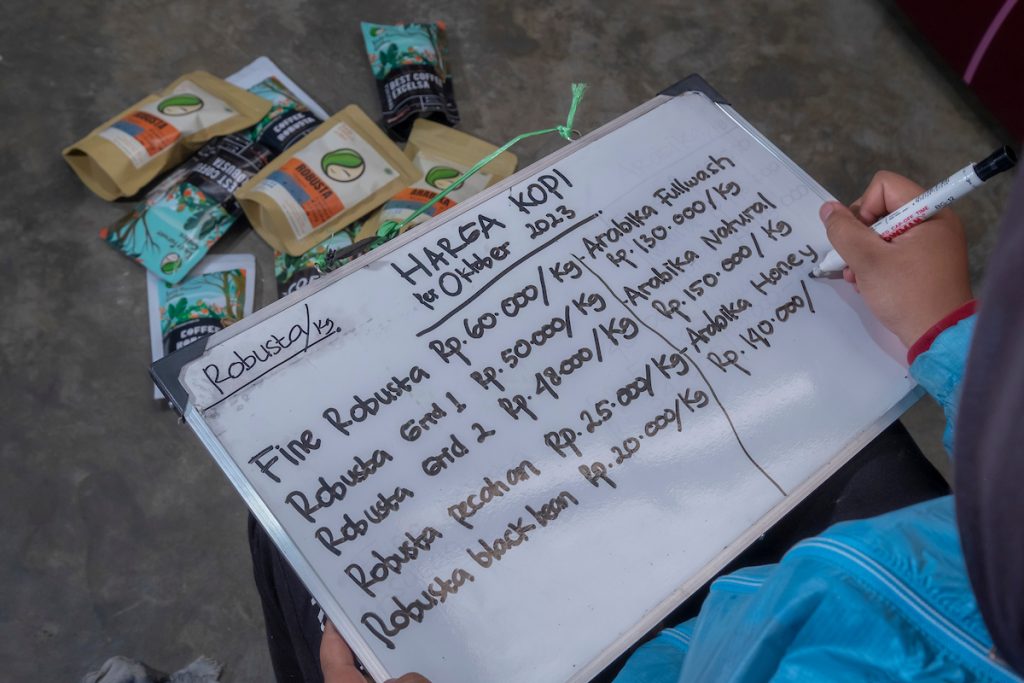 HARGA KOPI
per Oktober 2023
Robusta/Kg.
Fine Robusta Rp. 60.000/Kg
Robusta Grid 1 Rp. 50.000/Kg
Robusta Grid 2 Rp. 48.000/Kg
Robusta pecahan Rp. 25.000/Kg
Robusta black bean Rp. 20.000/Kg
-Arabika Fullwash
Rp. 130.000/Kg
-Arabika Natural
Rp. 150.000/Kg
-Arabika Honey
Rp. 140.000/
ROBUSTA
ROBUSTA
BEST COFFEE
EXCELSA
COFFEE
ROBUSTA
BEST COFFEE
ROBUSTA
COFFEE